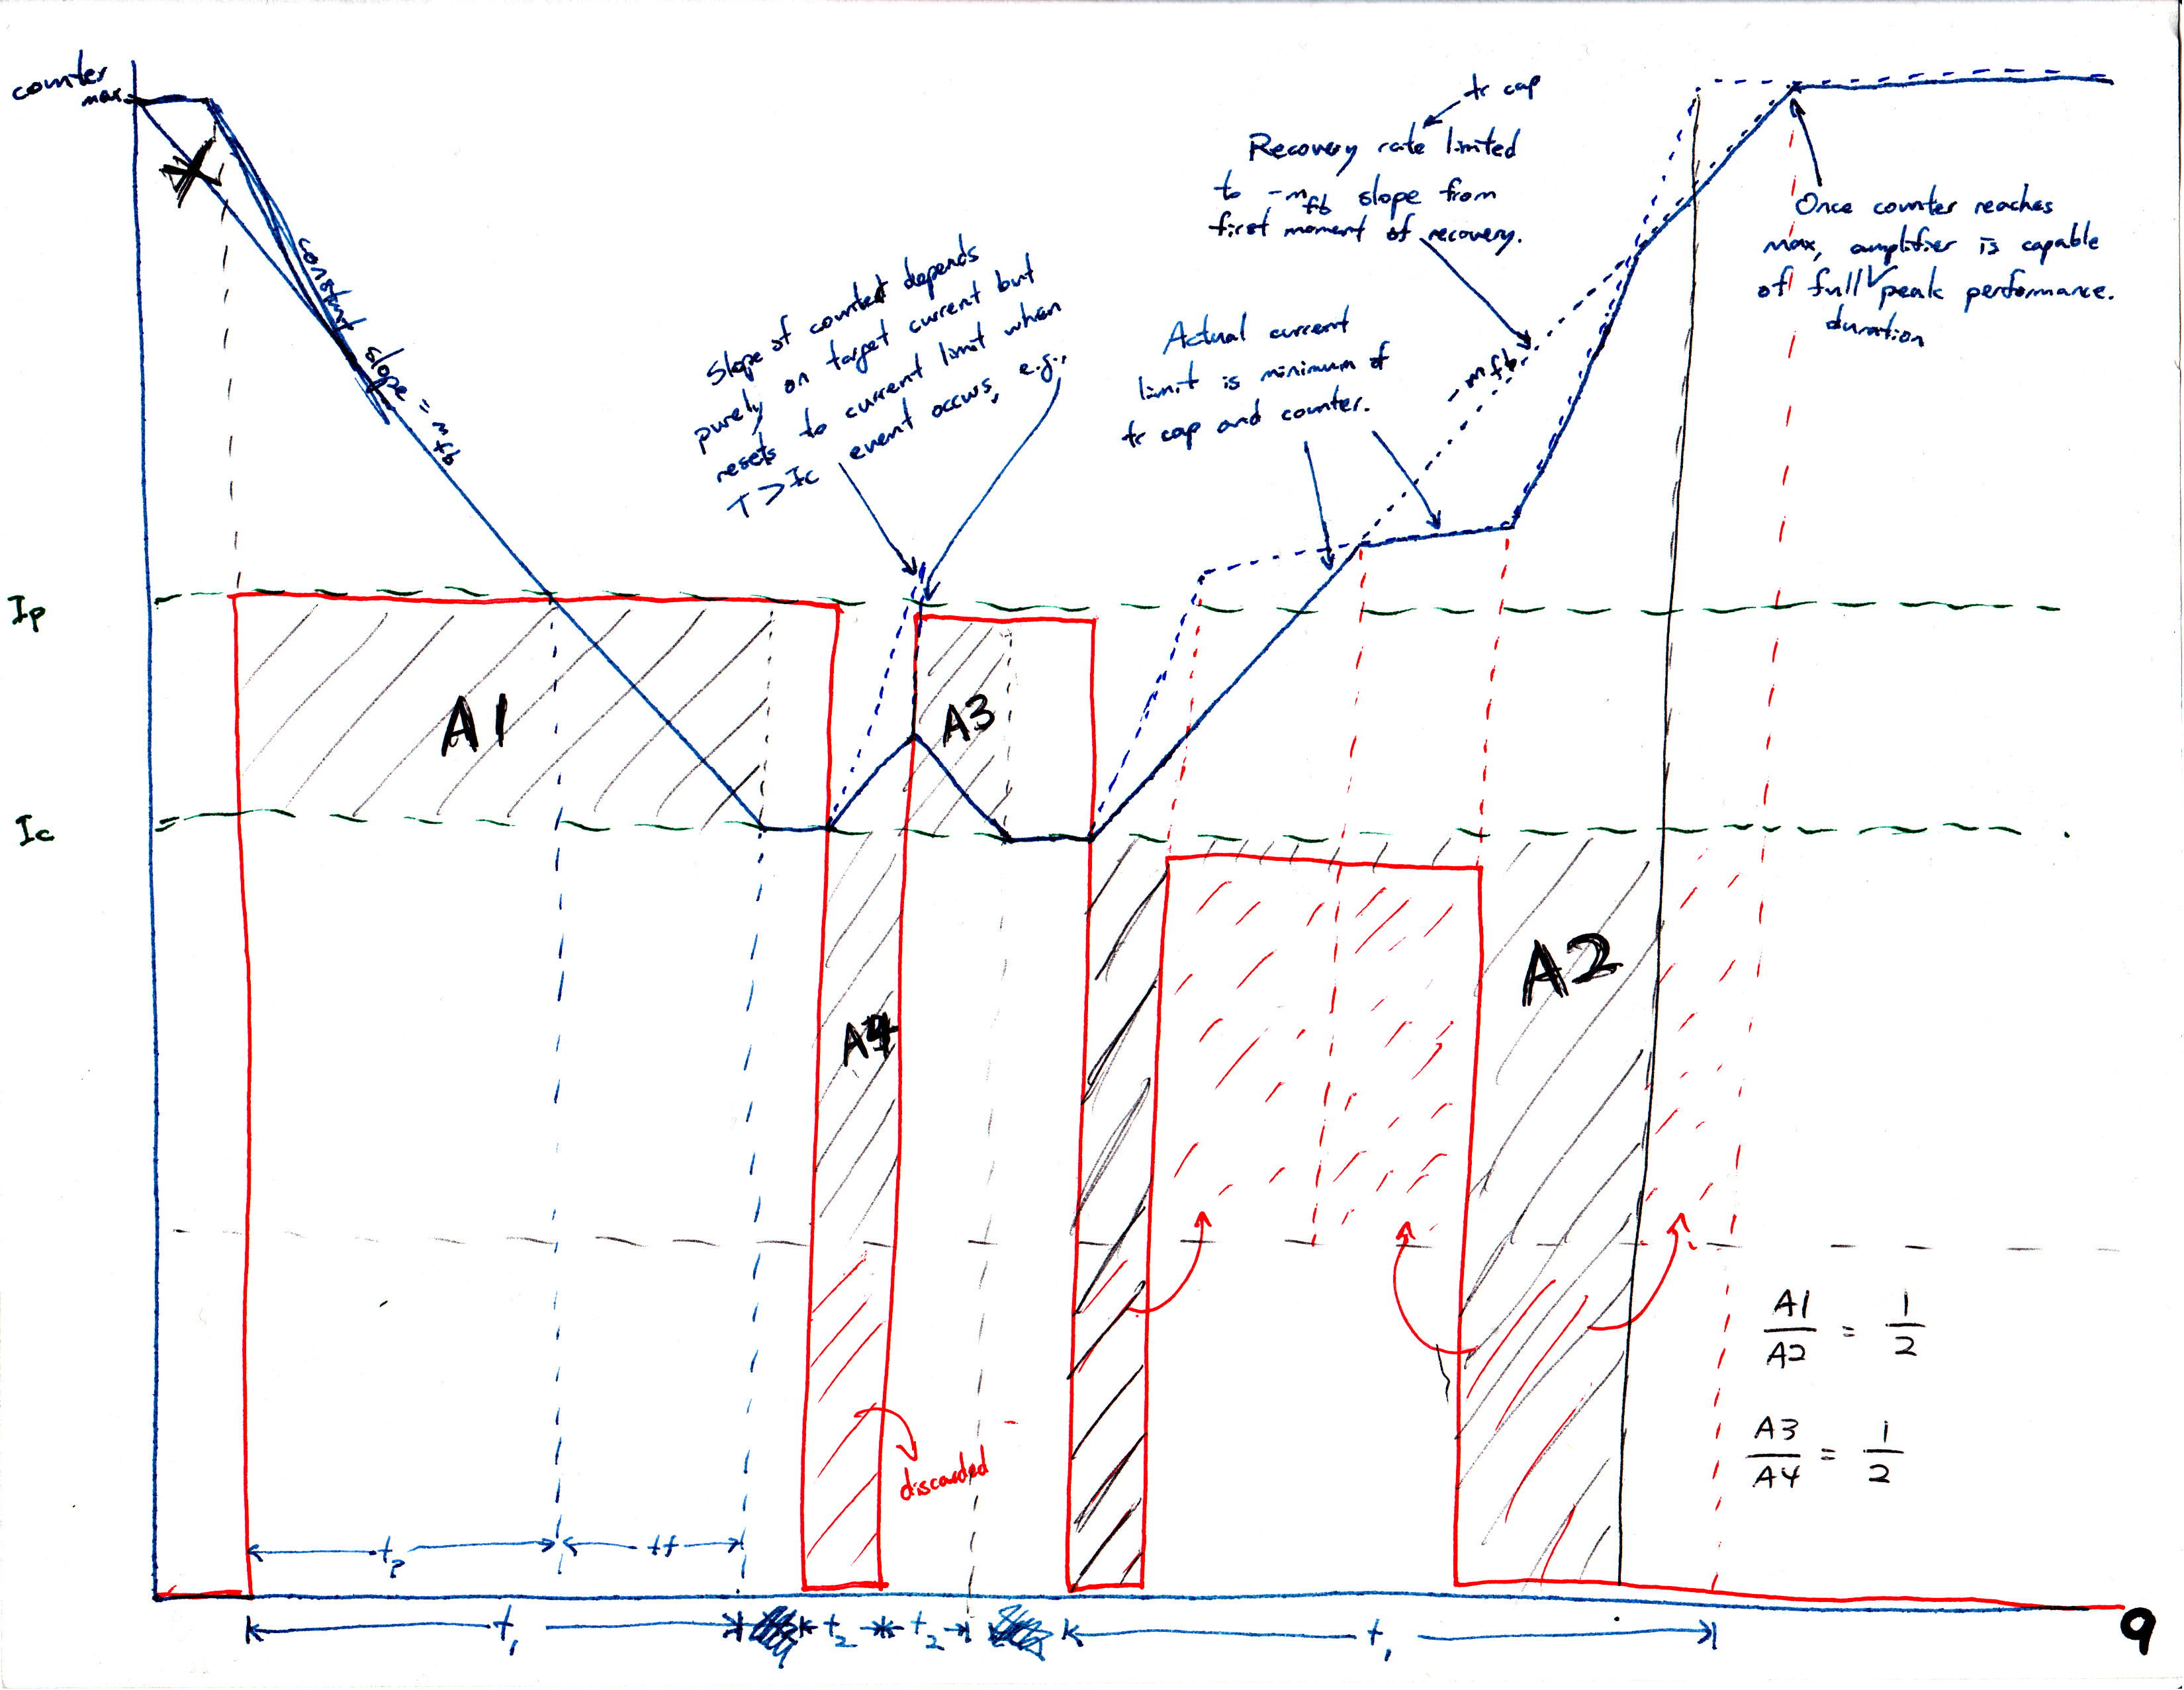 counter
max.
constant slope = mfb
Slope of counter depends
purely on target current but
resets to current limit when
T > Ic event occurs, e.g.,
tr cap
Recovery rate limited
to -mfb slope from
first moment of recovery.
Actual current
limit is minimum of
tr cap and counter.
-mfb
Once counter reaches
max, amplifier is capable
of full peak performance.
duration
Ip
Ic
A1
A3
A4
A2
discarded
A1/A2 = 1/2
A3/A4 = 1/2
tp
tf
t1
t2
t2
t1
9